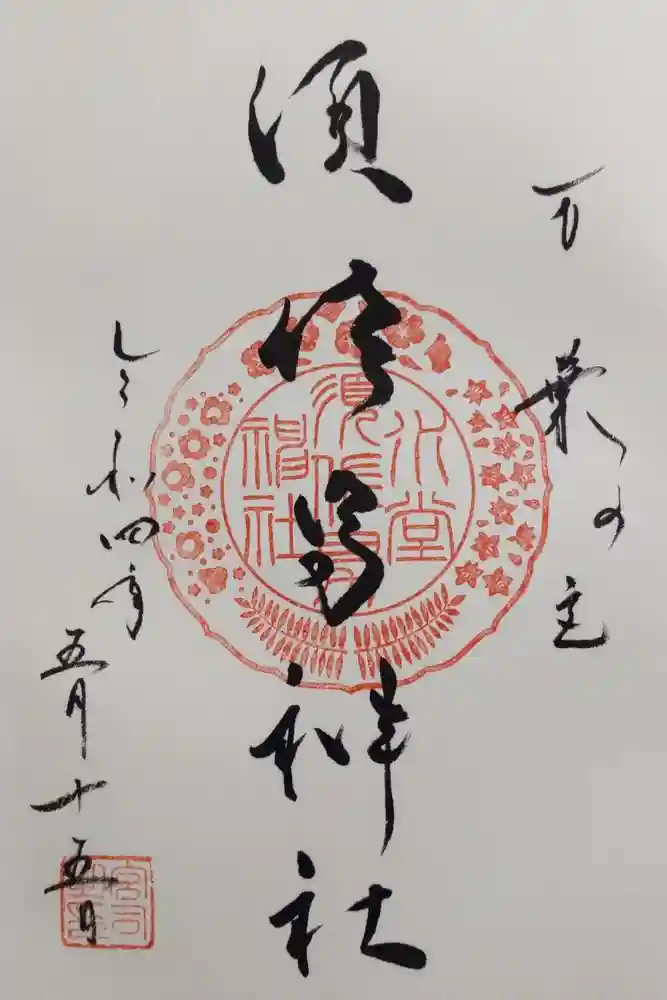 万葉の
須佐男神社
令和四年
五月十五日
水堂
須佐男
神社
宮司
之印